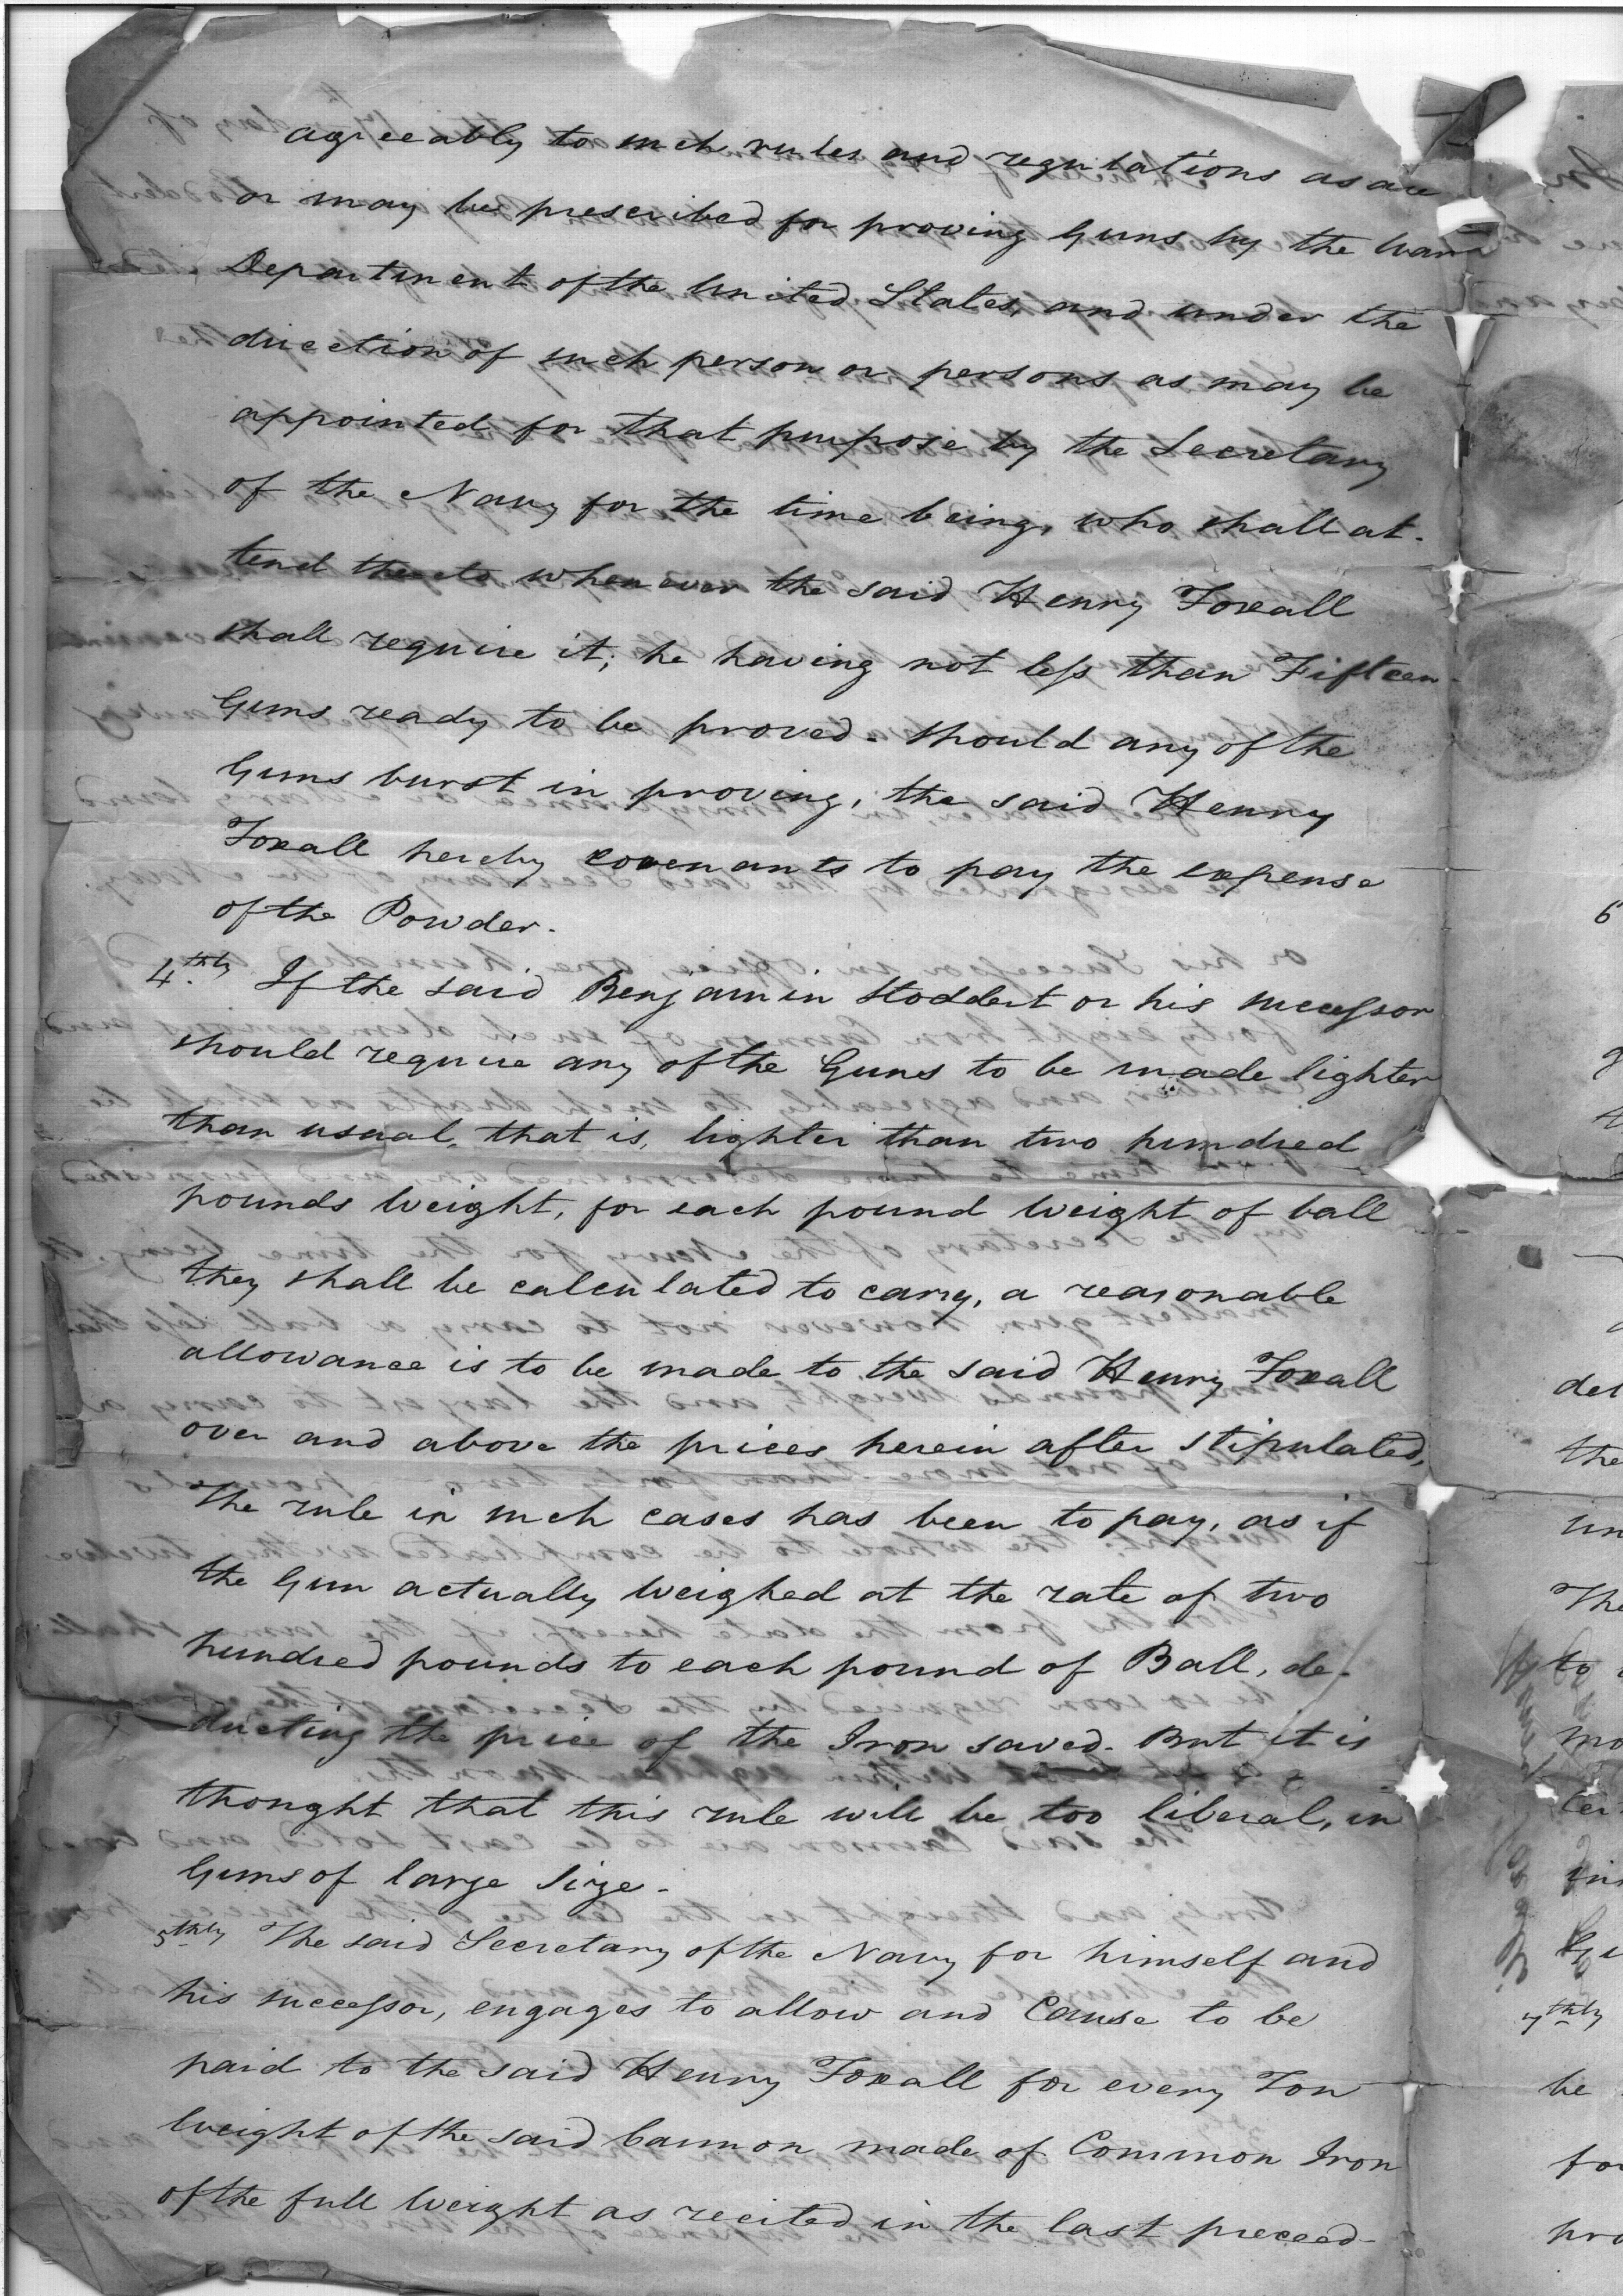 agreeably to such rules and regulations as are
or may be prescribed for proving Guns by the War
Department of the United States, and under the
direction of such person or persons as may be
appointed for that purpose by the Secretary
of the Navy for the time being, who shall at-
tend thereto whenever the said Henry Foxall
shall require it; he having not less than Fifteen
Guns ready to be proved. Should any of the
Guns burst in proving, the said Henry
Foxall hereby covenants to pay the expense
of the Powder.
4.thly If the said Benjamin Stoddert or his successor
should require any of the Guns to be made lighter
than usual, that is, lighter than two hundred
pounds weight, for each pound weight of ball
they shall be calculated to carry, a reasonable
allowance is to be made to the said Henry Foxall
over and above the prices herein after stipulated,
The rule in such cases has been to pay, as if
the Gun actually weighed at the rate of two
hundred pounds to each pound of Ball, de-
ducting the price of the Iron saved. But it is
thought that this rule will be too liberal, in
Guns of large size.
5thly The said Secretary of the Navy for himself and
his successor, engages to allow and Cause to be
paid to the said Henry Foxall for every Ton
weight of the said Cannon made of Common Iron
of the full weight as recited in the last preceed-
the
7thly
be